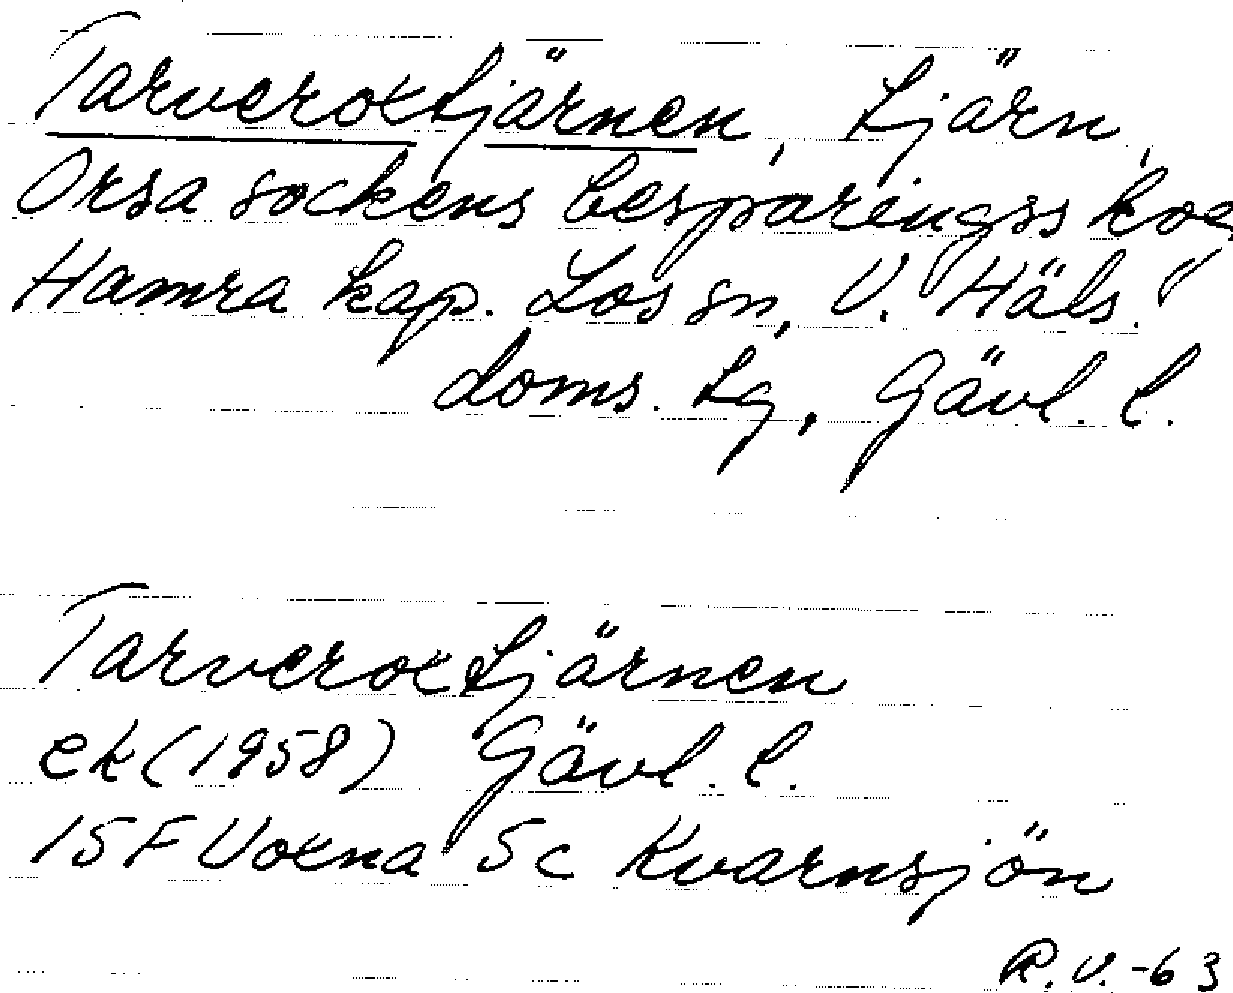 Tarveroxtjärnen, tjärn,
Orsa sockens besparingsskog,
Hamra kap. Los sn, V. Häls.
doms. tg, Gävl. l.
Tarveroxtjärnen
ek (1958) Gävl. l.
15F Voxna 5c Kvarnsjön
R.V.-63